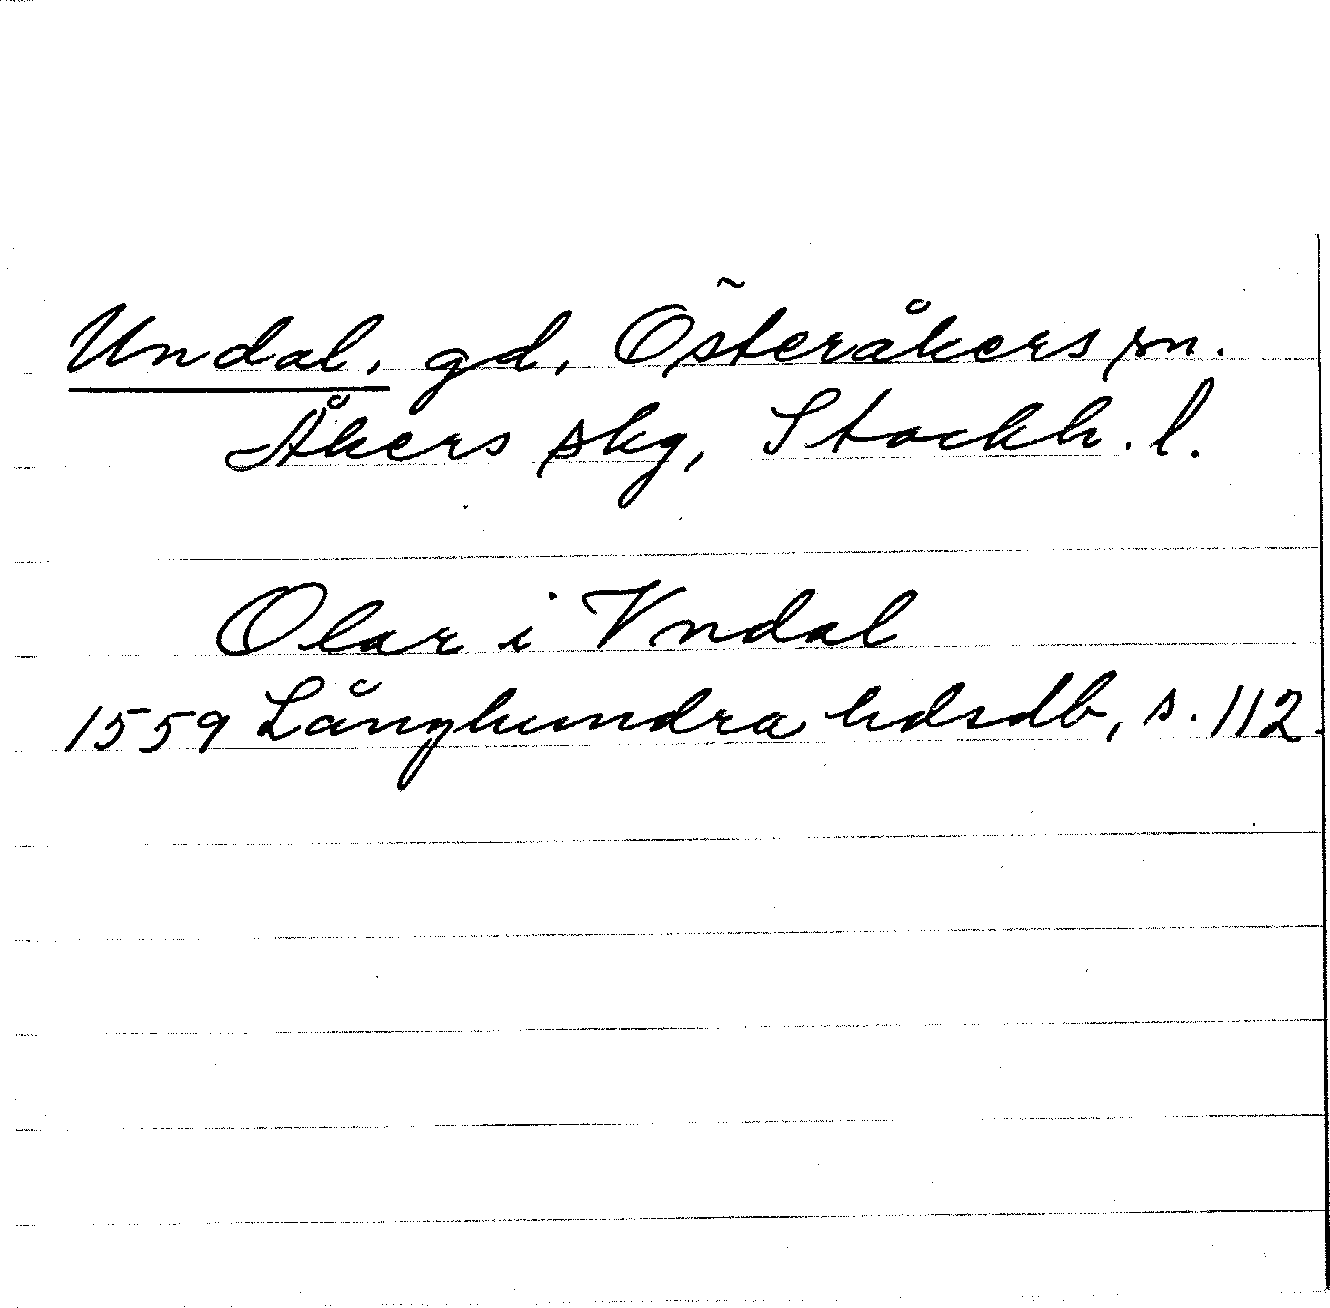 Undal, gd, Österåkers sn.
Åkers skg, Stockh. l.
Olar i Vndal
1559 Långhundra hdsdb, s. 112.